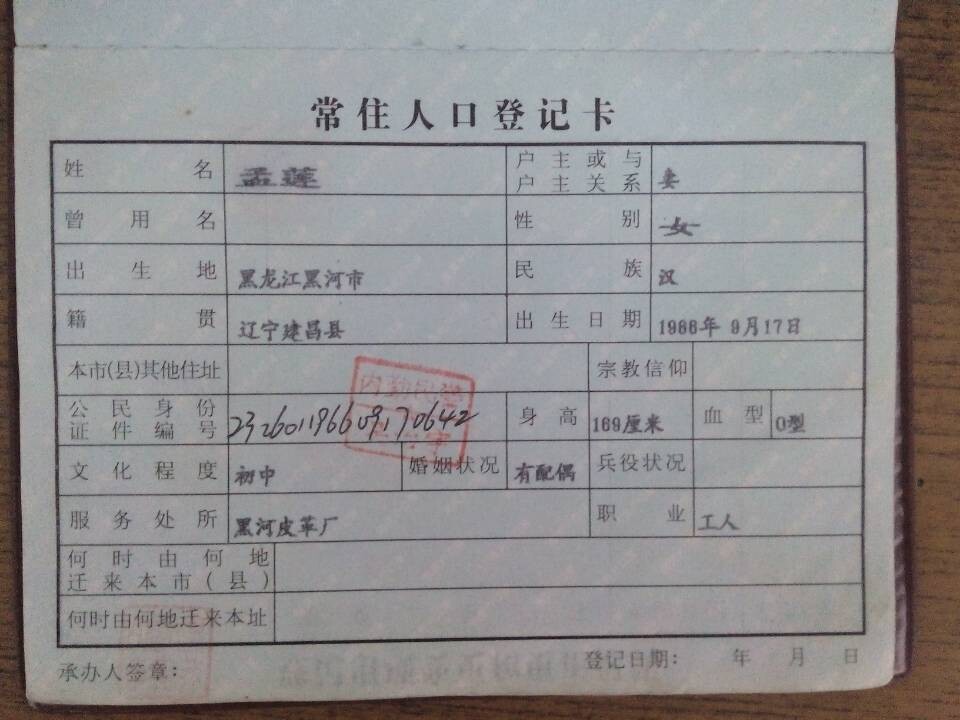 常住人口登记卡
姓名 孟莲 户主或与户主关系 妻
曾用名 性别 女
出生地 黑龙江黑河市 民族 汉
籍贯 辽宁建昌县 出生日期 1966年 9月17日
本市(县)其他住址 宗教信仰
公民身份证件编号 232601196609170642 身高 169厘米 血型 O型
文化程度 初中 婚姻状况 有配偶 兵役状况
服务处所 黑河皮革厂 职业 工人
何时由何地迁来本市(县)
何时由何地迁来本址
承办人签章: 登记日期: 年 月 日